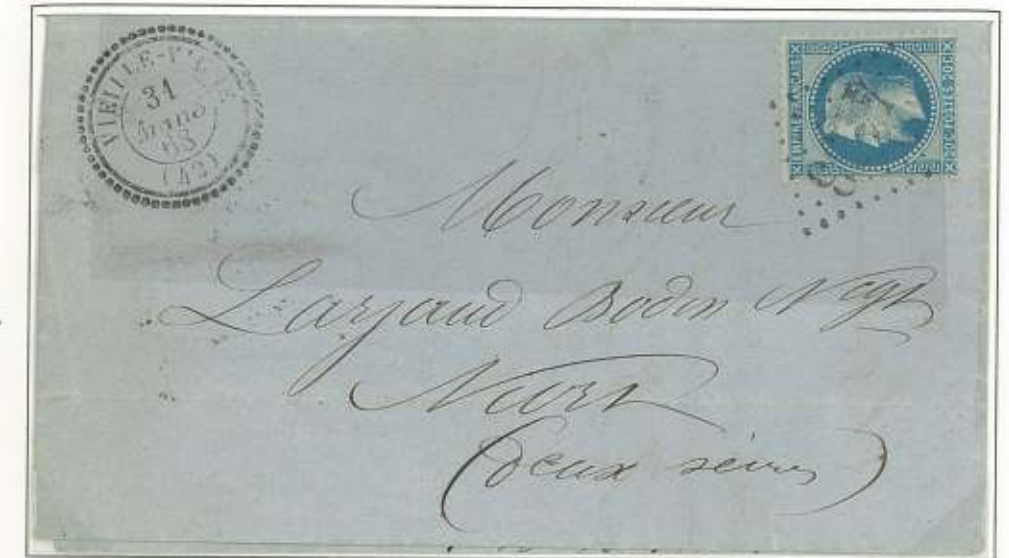 VIEILLE-
31
MARS
68
(42)
EMPIRE FRANÇAIS
20C POSTES 20C
Monsieur
Larjaud Bodin Negt
Niort
(deux sèvres)